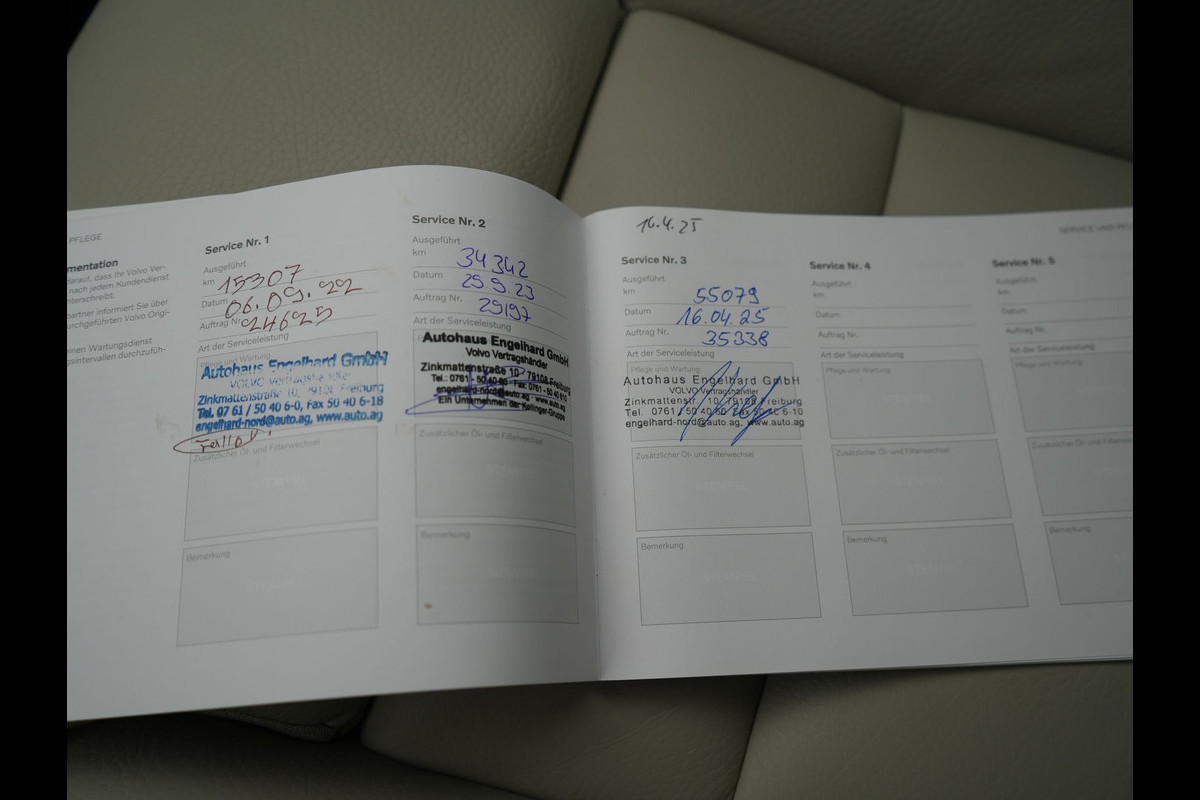 PFLEGE
mentation
darauf, dass Ihr Volvo Ver-
nach jedem Kundendienst
nterschreibt.
partner informiert Sie über
urchgeführten Volvo Origi-
inen Wartungsdienst
gsintervallen durchzufüh-
Service Nr. 1
Ausgeführt
km 15307
Datum 06.09.22
Auftrag Nr. 24625
Art der Serviceleistung
Pflege und Wartung
Autohaus Engelhard GmbH
VOLVO Vertragshändler
Zinkmattenstr. 10, 79108 Freiburg
Tel. 07 61 / 50 40 6-0, Fax 50 40 6-18
engelhard-nord@auto.ag, www.auto.ag
Zusätzlicher Öl- und Filterwechsel
STEMPEL
Bemerkung
STEMPEL
Service Nr. 2
Ausgeführt
km 34342
Datum 25.9.23
Auftrag Nr. 29197
Art der Serviceleistung
Autohaus Engelhard GmbH
Volvo Vertragshändler
Zinkmattenstraße 10 · 79108 Freiburg
engelhard-nord@auto.ag · www.auto.ag
Ein Unternehmen der Kollinger-Gruppe
Zusätzlicher Öl- und Filterwechsel
STEMPEL
Bemerkung
STEMPEL
16.4.25
Service Nr. 3
Ausgeführt
km 55079
Datum 16.04.25
Auftrag Nr. 35338
Art der Serviceleistung
Pflege und Wartung
Autohaus Engelhard GmbH
VOLVO Vertragshändler
Zinkmattenstr. 10, 79108 Freiburg
Tel. 0761/50 40 60 Fax 50 40 6-10
engelhard-nord@auto.ag, www.auto.ag
Zusätzlicher Öl- und Filterwechsel
STEMPEL
Bemerkung
STEMPEL
Service Nr. 4
Ausgeführt
km
Datum
Auftrag Nr.
Art der Serviceleistung
Pflege und Wartung
Zusätzlicher Öl- und Filterwechsel
STEMPEL
Bemerkung
STEMPEL
SERVICE UND PFL
Service Nr. 5
Ausgeführt
km
Datum
Auftrag Nr.
Art der Serviceleistung
Pflege und Wartung
Zusätzlicher Öl- und Filterwechsel
Bemerkung